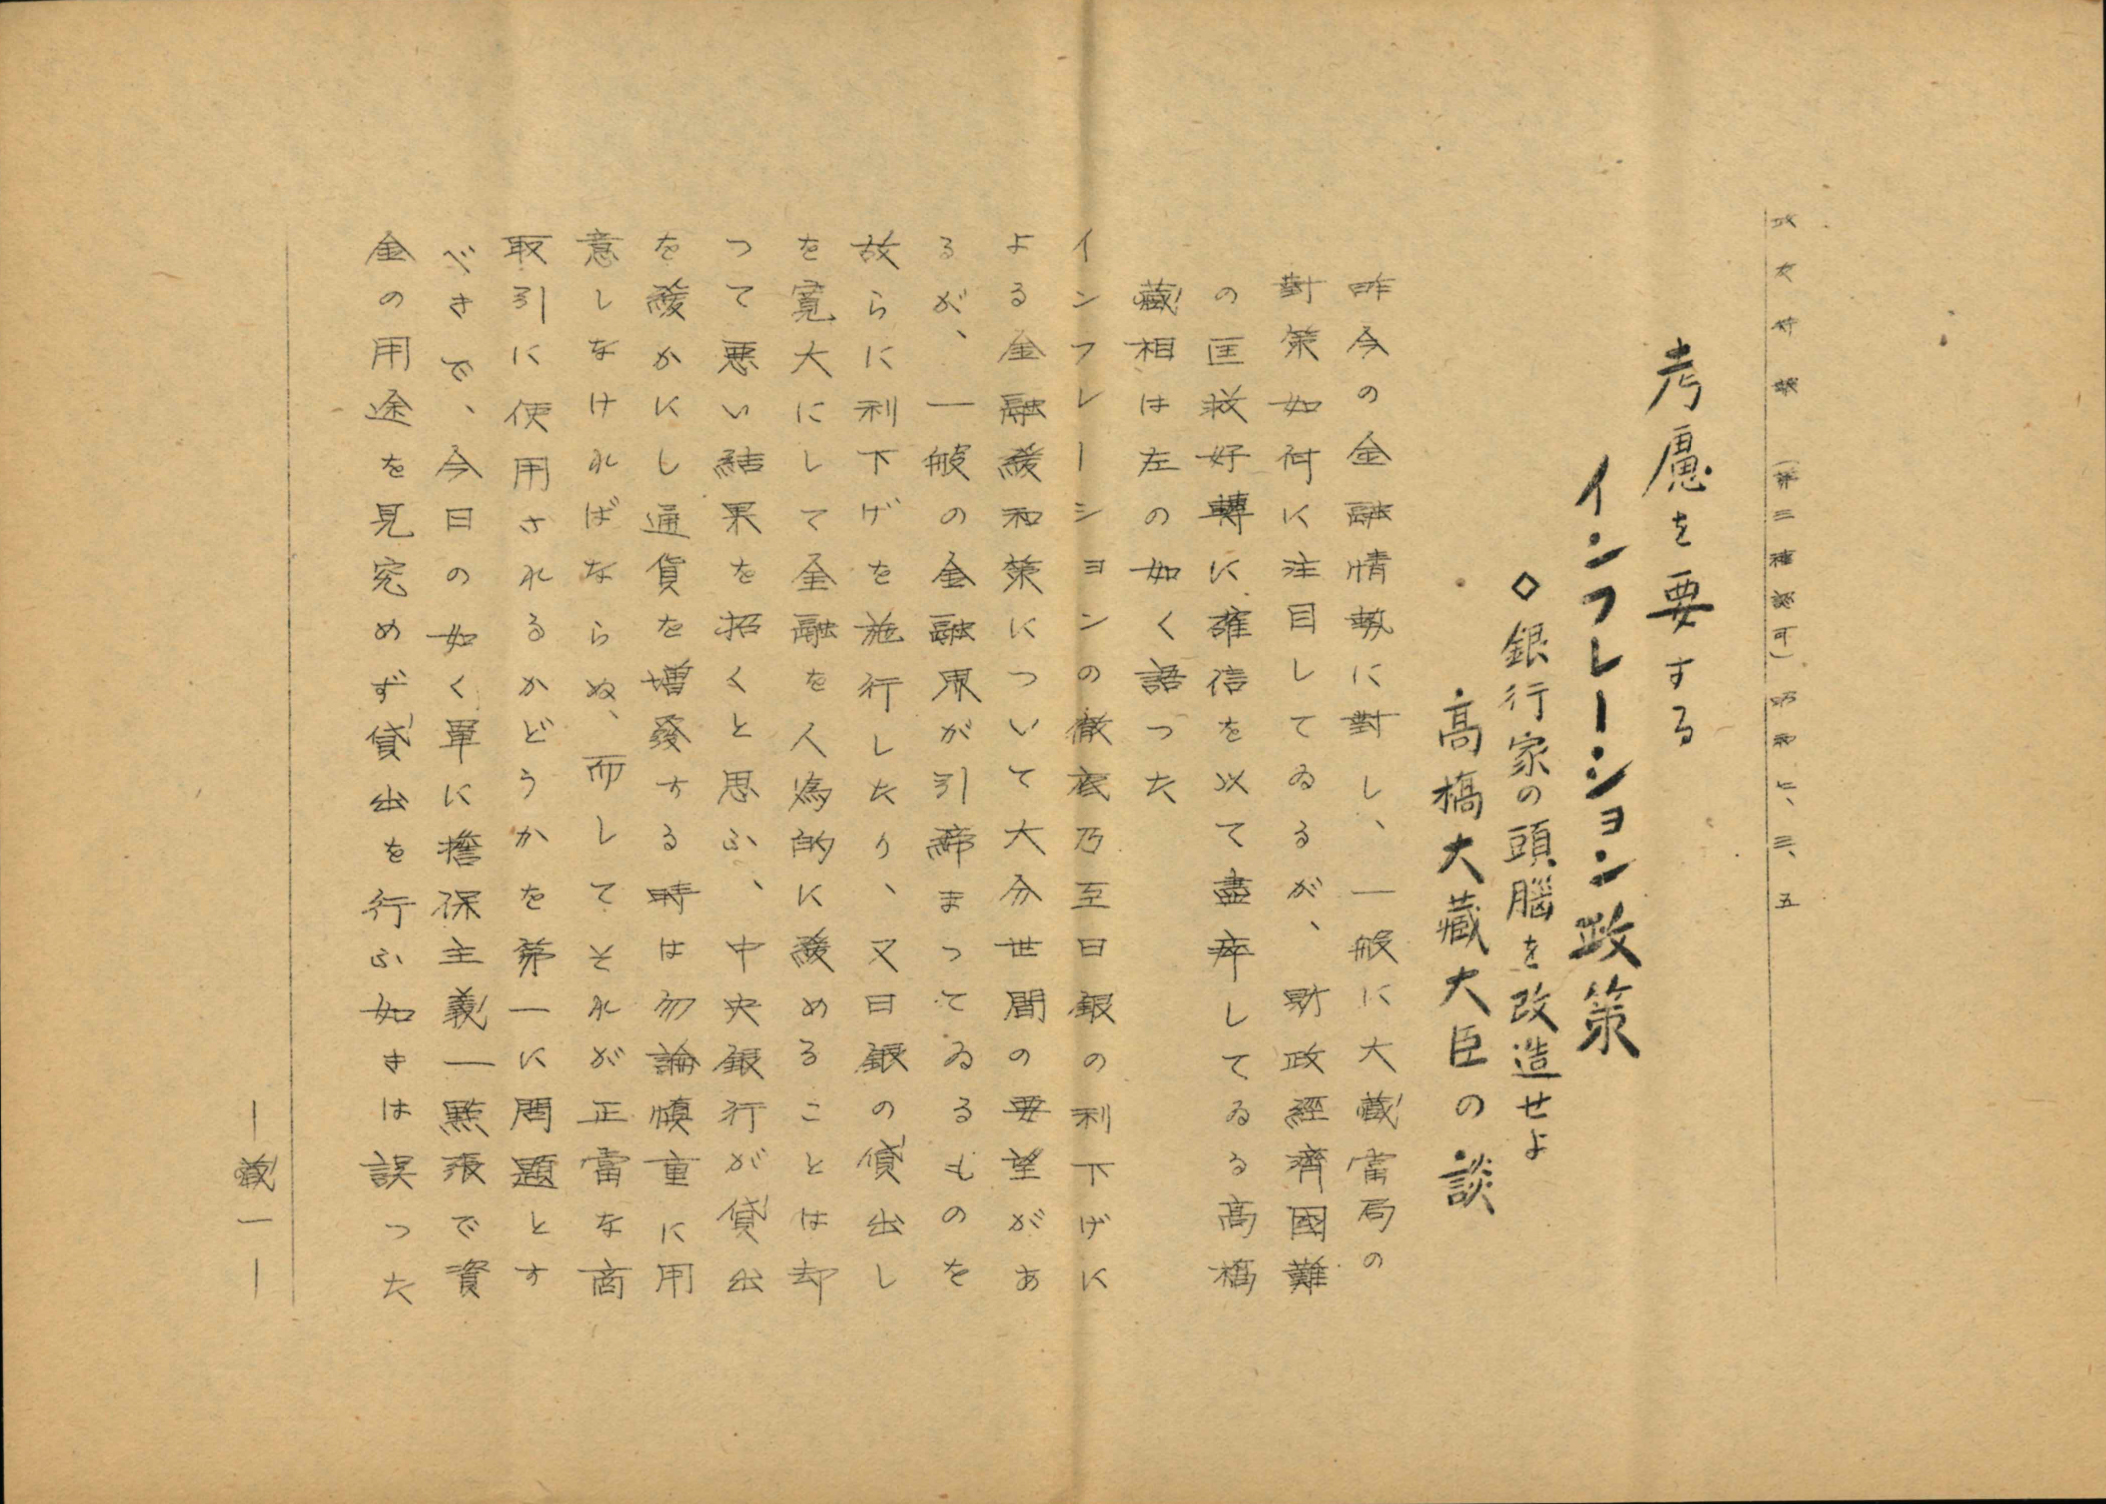 （第三種認可）昭和七、三、五
考慮を要する
インフレーション政策
◇銀行家の頭腦を改造せよ
高橋大藏大臣の談
昨今の金融情勢に對し、一般に大藏當局の
對策如何に注目してゐるが、財政經濟國難
の匡救好轉に確信を以て盡瘁してゐる高橋
藏相は左の如く語つた
インフレーションの徹底乃至日銀の利下げに
よる金融緩和策について大分世間の要望があ
るが、一般の金融界が引締まつてゐるものを
故らに利下げを施行したり、又日銀の貸出し
を寛大にして金融を人為的に緩めることは却
つて悪い結果を招くと思ふ、中央銀行が貸出
を緩かにし通貨を増發する時は勿論愼重に用
意しなければならぬ、而してそれが正當な商
取引に使用されるかどうかを第一に問題とす
べきで、今日の如く單に擔保主義一點張で資
金の用途を見究めず貸出を行ふ如きは誤つた
—藏一—